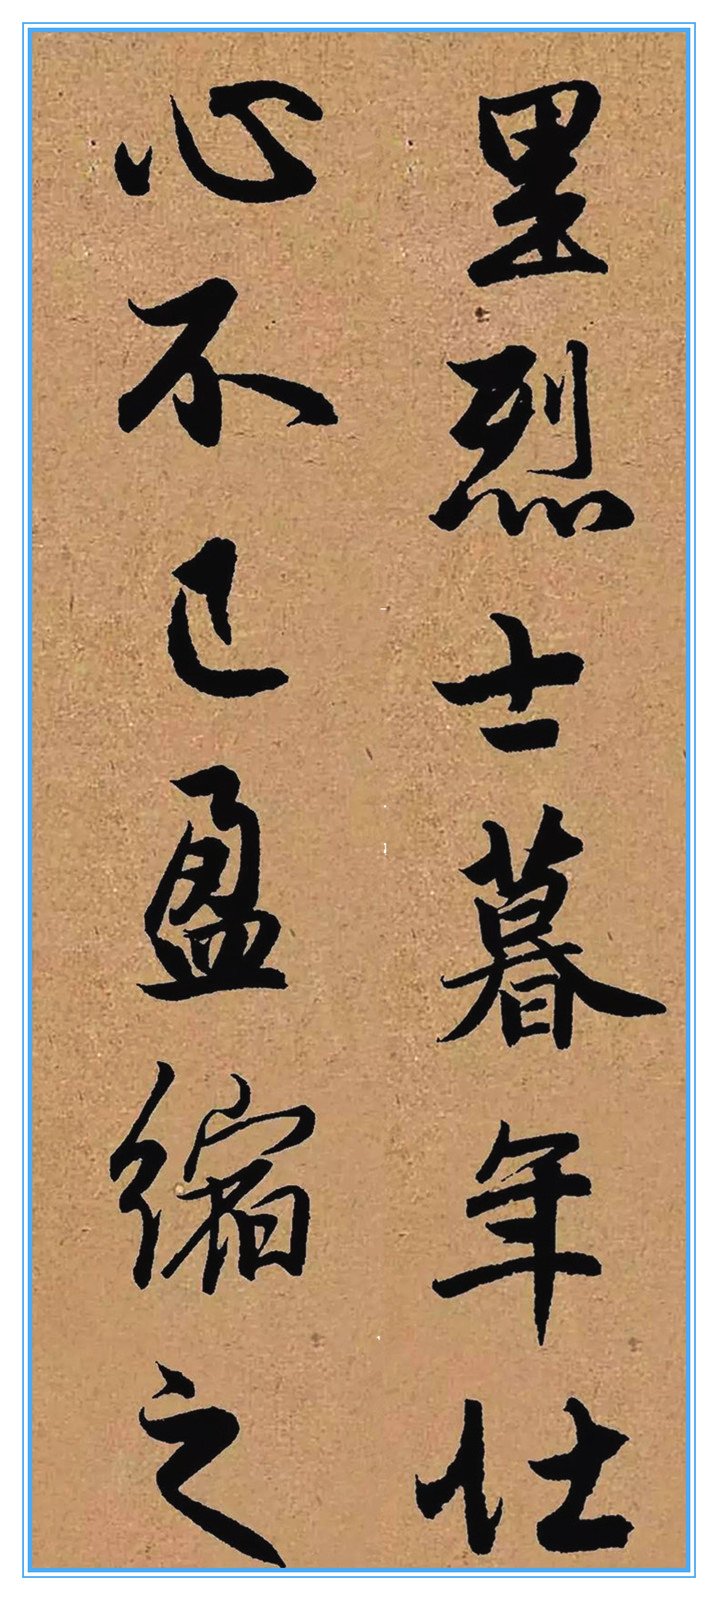 里烈士暮年壮
心不已盈缩之